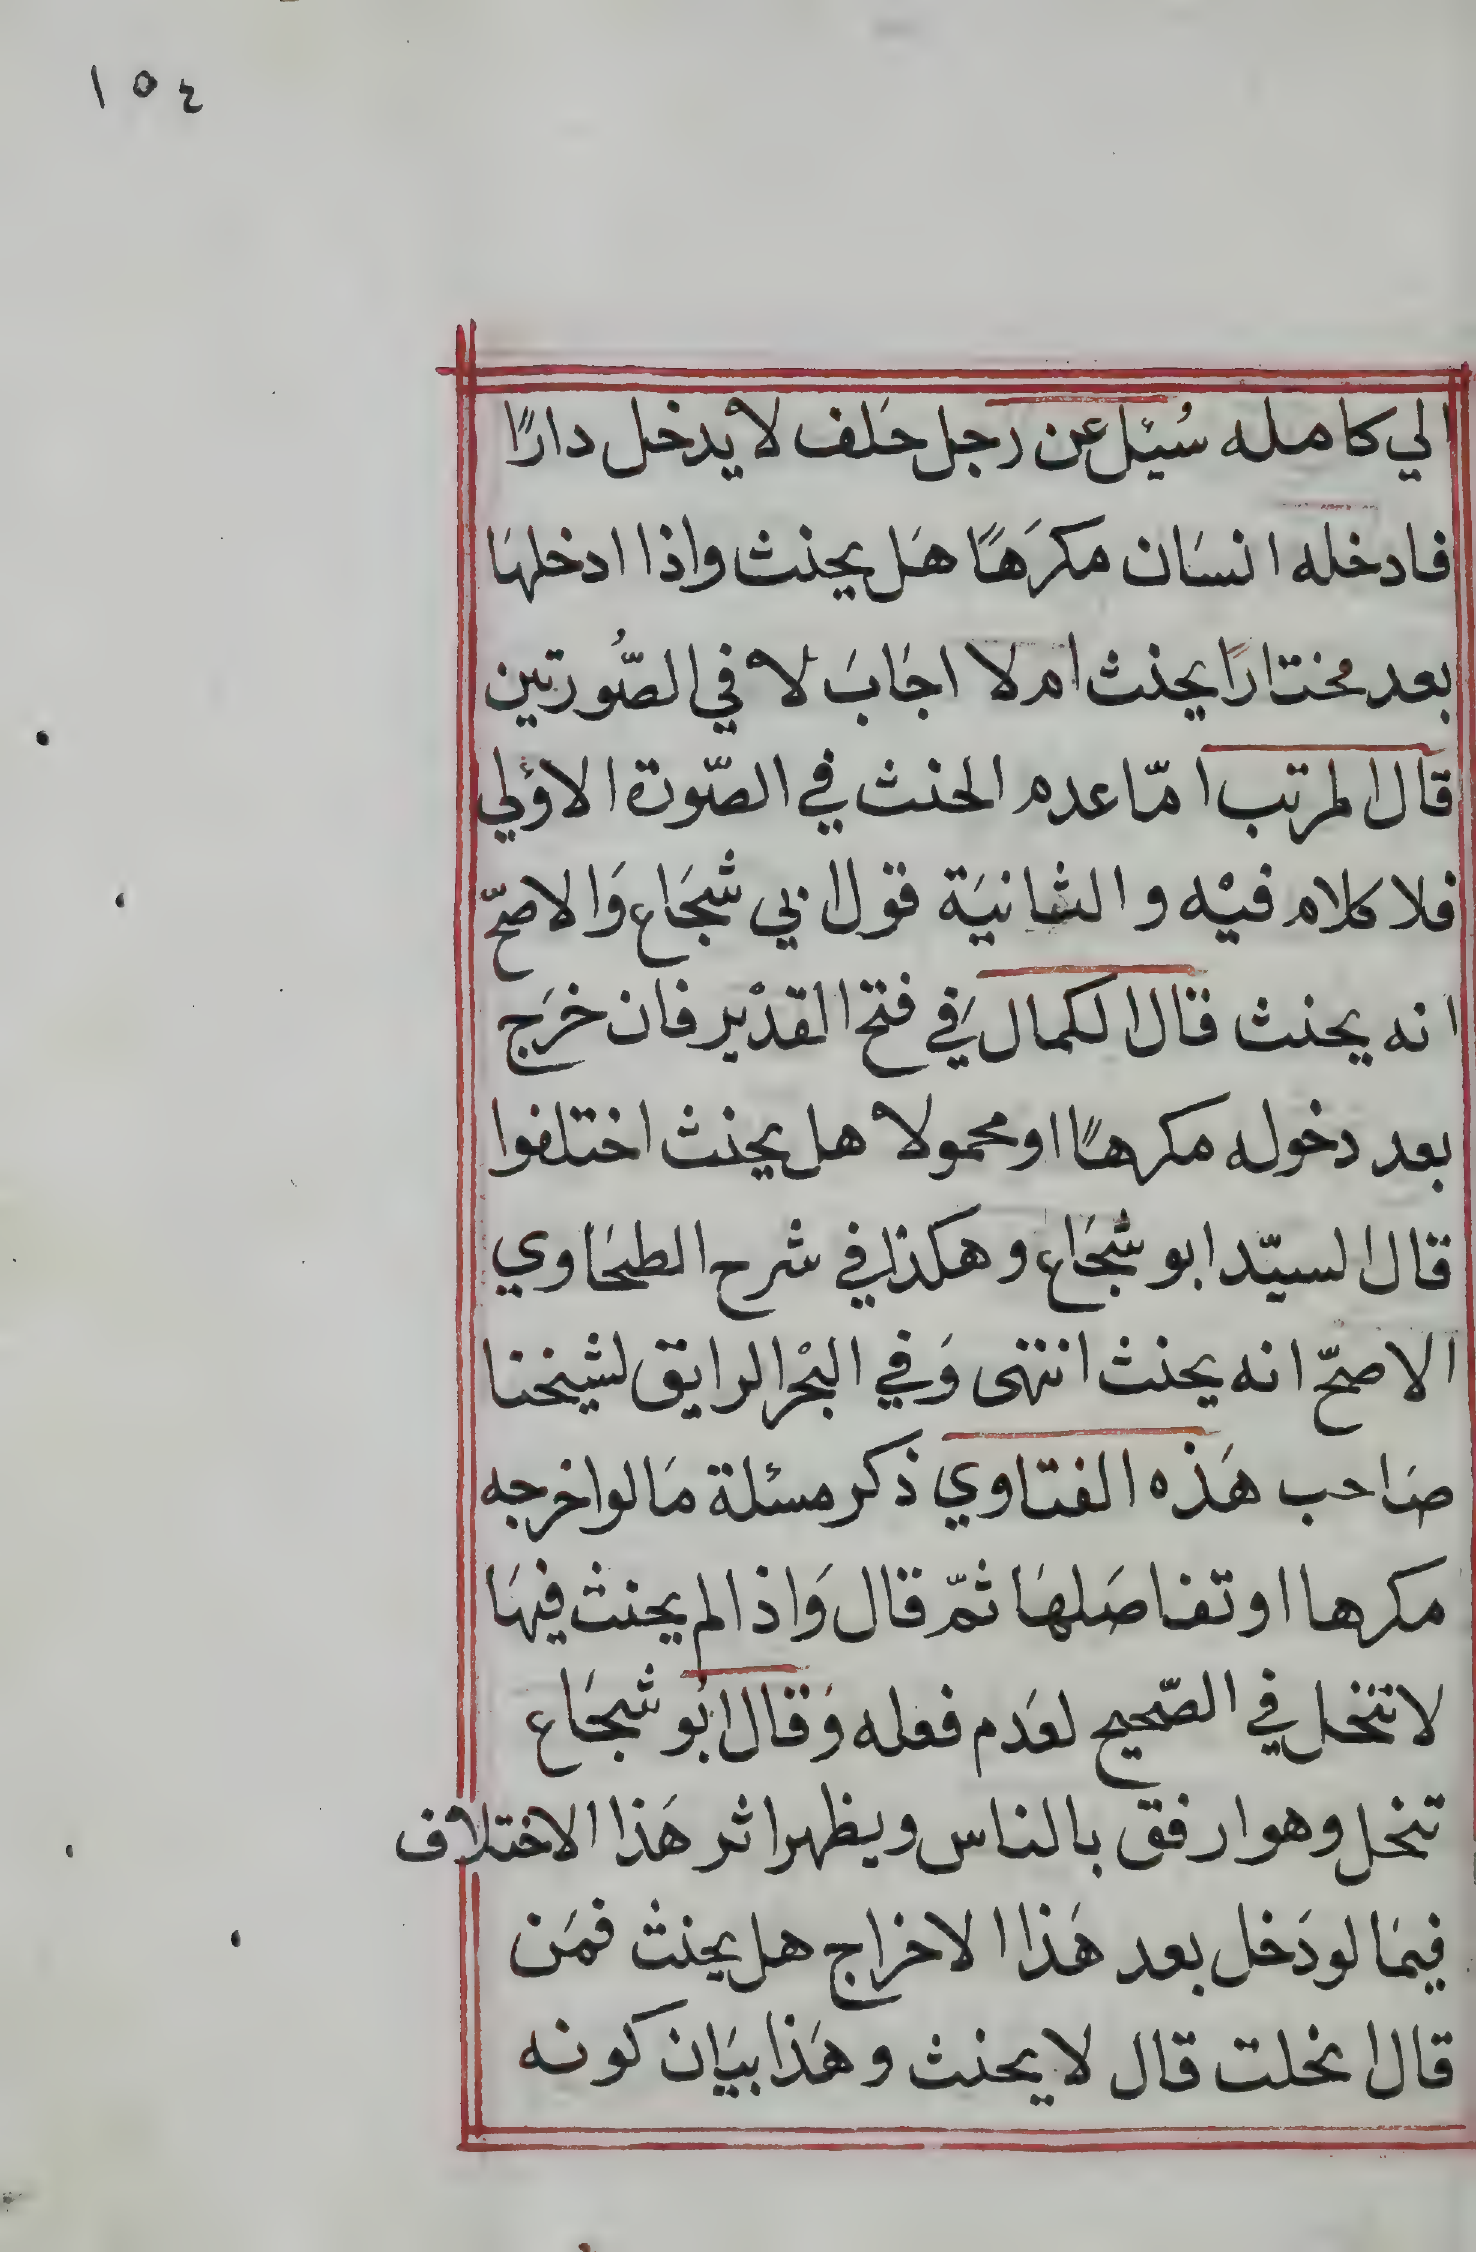 ١٥٤
الي كامله سُئِل عن رجل حَلف لا يدخل دارًا
فادخله انسَان مكرَهًا هَل يحنث واذا ادخلهَا
بعد مختارًا يحنث ام لا اجَابَ لا في الصُّورتين
قال المرتب امّا عدم الحنث في الصّورة الاؤلي
فلا كلام فيْه والثانيَة قول ابي شجَاع وَالاصحّ
انه يحنث قال الكمال في فتح القدْير فان خرَج
بعد دخوله مكرهًا او محمولا هل يحنث اختلفوا
قال السيّد ابو شجَاع وهكذا في شرح الطحَاوي
الاصحّ انه يحنث انتهى وَفي البحْر الرايق لشيخنا
صَاحب هَذه الفتاوي ذكر مسئلة مَا لو اخرجه
مكرها او تفاصَلهَا ثمّ قال وَاذا لم يحنث فيهَا
لا تنحل في الصّحيح لعَدم فعله وَقال ابُو شجَاع
تنحل وهو ارفق بالناس ويظهر اثر هَذا الاختلاف
فيمَا لو دَخل بعد هَذا الاخراج هل يحنث فمَن
قال انحلت قال لا يحنث وهَذا بيَان كونه